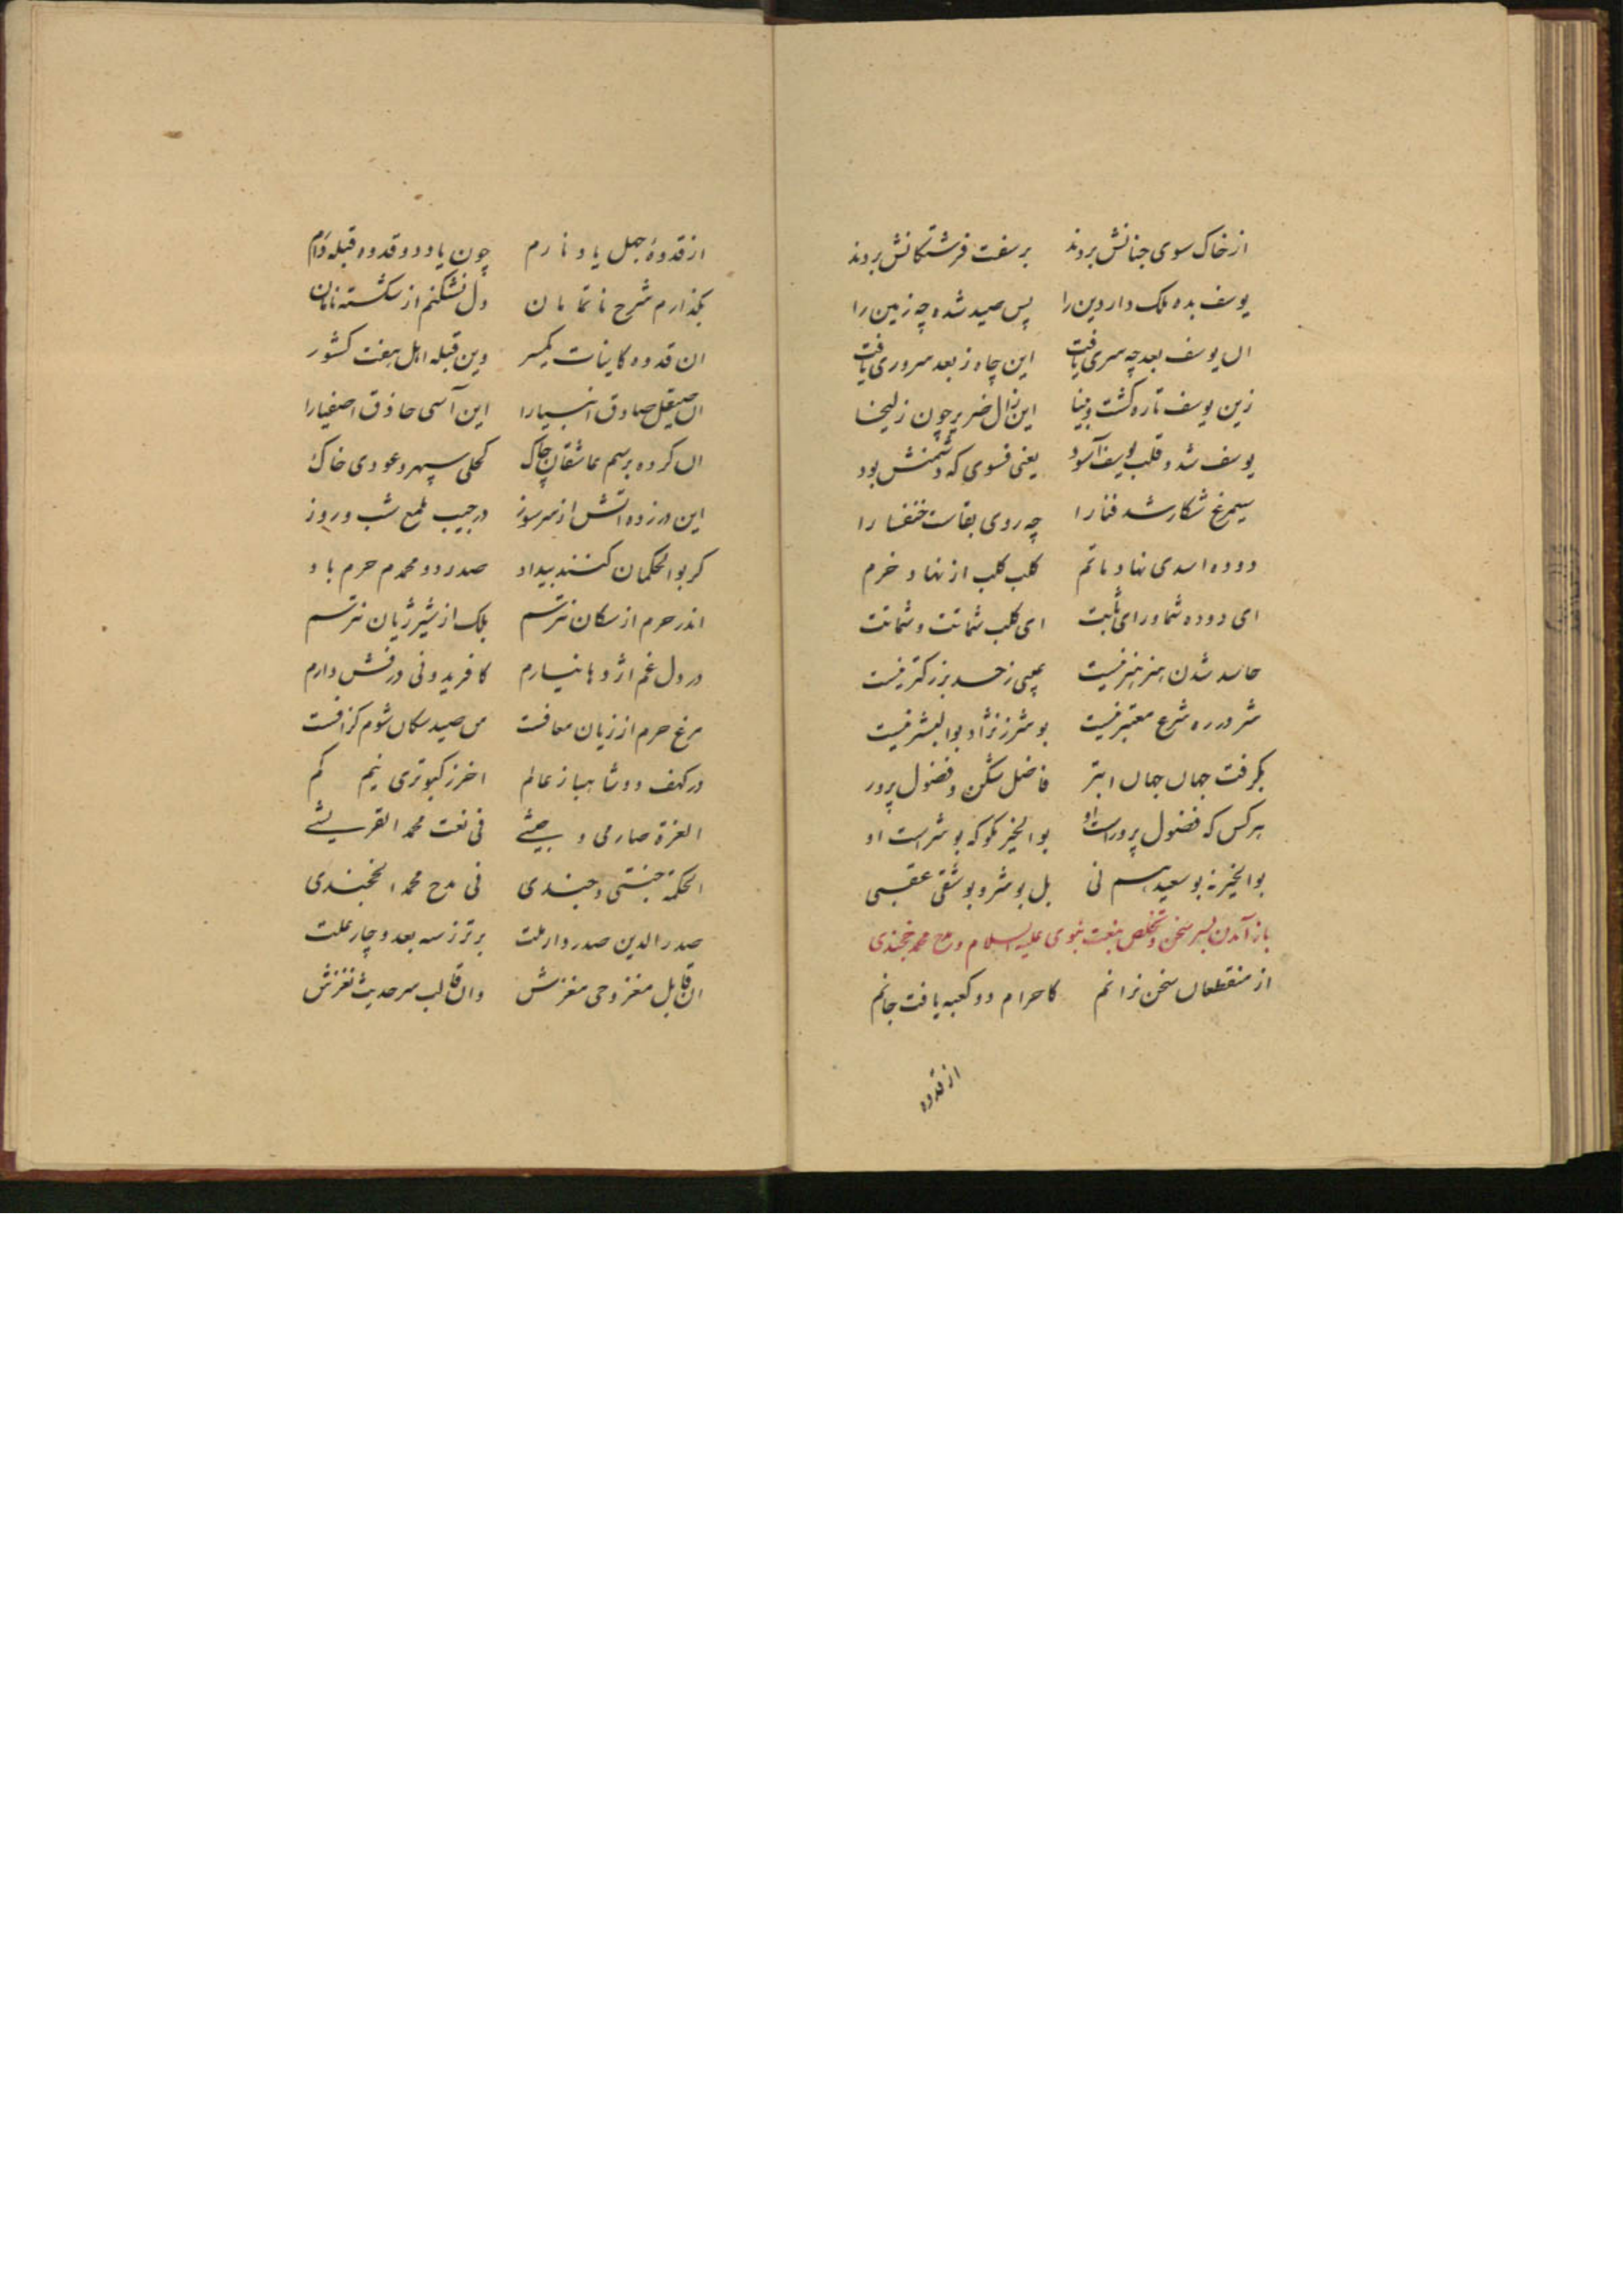 از خاک سوی جنانش بردند بر سفت فرشتکانش بردند
یوسف بده ملک دار دین را پس صید شده چه زمین را
ان یوسف بعد چه سری یافت این چاه ز بعد سروری یافت
زین یوسف تازه کشت و بینا این زال ضریر چون زلیخا
یوسف شد و قلب یوسف آسود یعنی فسوی که دشمنش بود
سیمرغ شکار شد فنا را چه روی بقاست خنفسا را
دوده اسدی نهاد ماتم کلب کلب از نهاد خرم
ای دوده شما ورای ثبت ای کلب شماتت و شماتت
حاسد شدن هنر هنر نیست عیبی ز حسد بزرکتر نیست
شر در ره شرع معتبر نیست بوشرز نژاد بوالبشر نیست
بکرفت جهان جهان ابتر فاضل شکن و فضول پرور
هر کس که فضول پرور است او بوالخیر مکو که بوشر است او
بوالخیر نه بوسعید هم نی بل بوشر و بوشقی عقبی
باز آمدن بسر سخن و تخلص بنعت نبوی علیه السلام و مدح محمد خجندی
از منقطعان سخن نرانم کاحرام دو کعبه یافت جانم
از قدوه
از قدوهٔ جهل یاد نارم چون یاد دو قدوه قبله دارم
بکذارم شرح ناتمامان دل نشکنم از شکسته نامان
ان قدوه کاینات یکسر وین قبله اهل هفت کشور
ان صیقل صادق انبیا را این آسی حاذق اصفیا را
ان کرده برسم عاشقان چاک کحلی سپهر و عودی خاک
این در زده اتش از سر سوز در جیب ملمع شب و روز
کر بوالحکمان کنند بیداد صدر دو محمدم حرم باد
اندر حرم از سکان نترسم بلک از شیر ژیان نترسم
در دل غم اژدها نیارم کافریدونی درفش دارم
مرغ حرم از زیان معافست من صید سکان شوم کزافست
در کهف دو شاهباز عالم اخر ز کبوتری نیم کم
العزة صارمی و جیشی فی نعت محمد القریشی
الحکمة جنتی و جندی فی مدح محمد الخجندی
صدر الدین صدر دار ملت برتر ز سه بعد و چار علت
ان قابل مغز وحی مغزش وان قالب سر حدیث نغزش